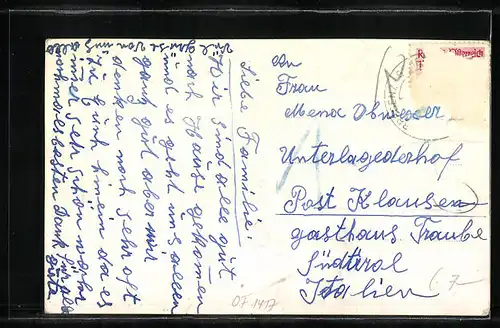 Liebe Familie!
Wir sind alle gut
nach Hause gekomen
und es geht uns allen
ganz gut aber wir
denken noch sehr oft
zu Euch hinein da es
immer sehr schön war
nochmals besten Dank für alles
gute
viele Grüsse von uns alle
An
Frau
Mena Obwexer
Unterlagederhof
Post Klausen
gasthaus Traube
Südtirol
Italien
07 1417